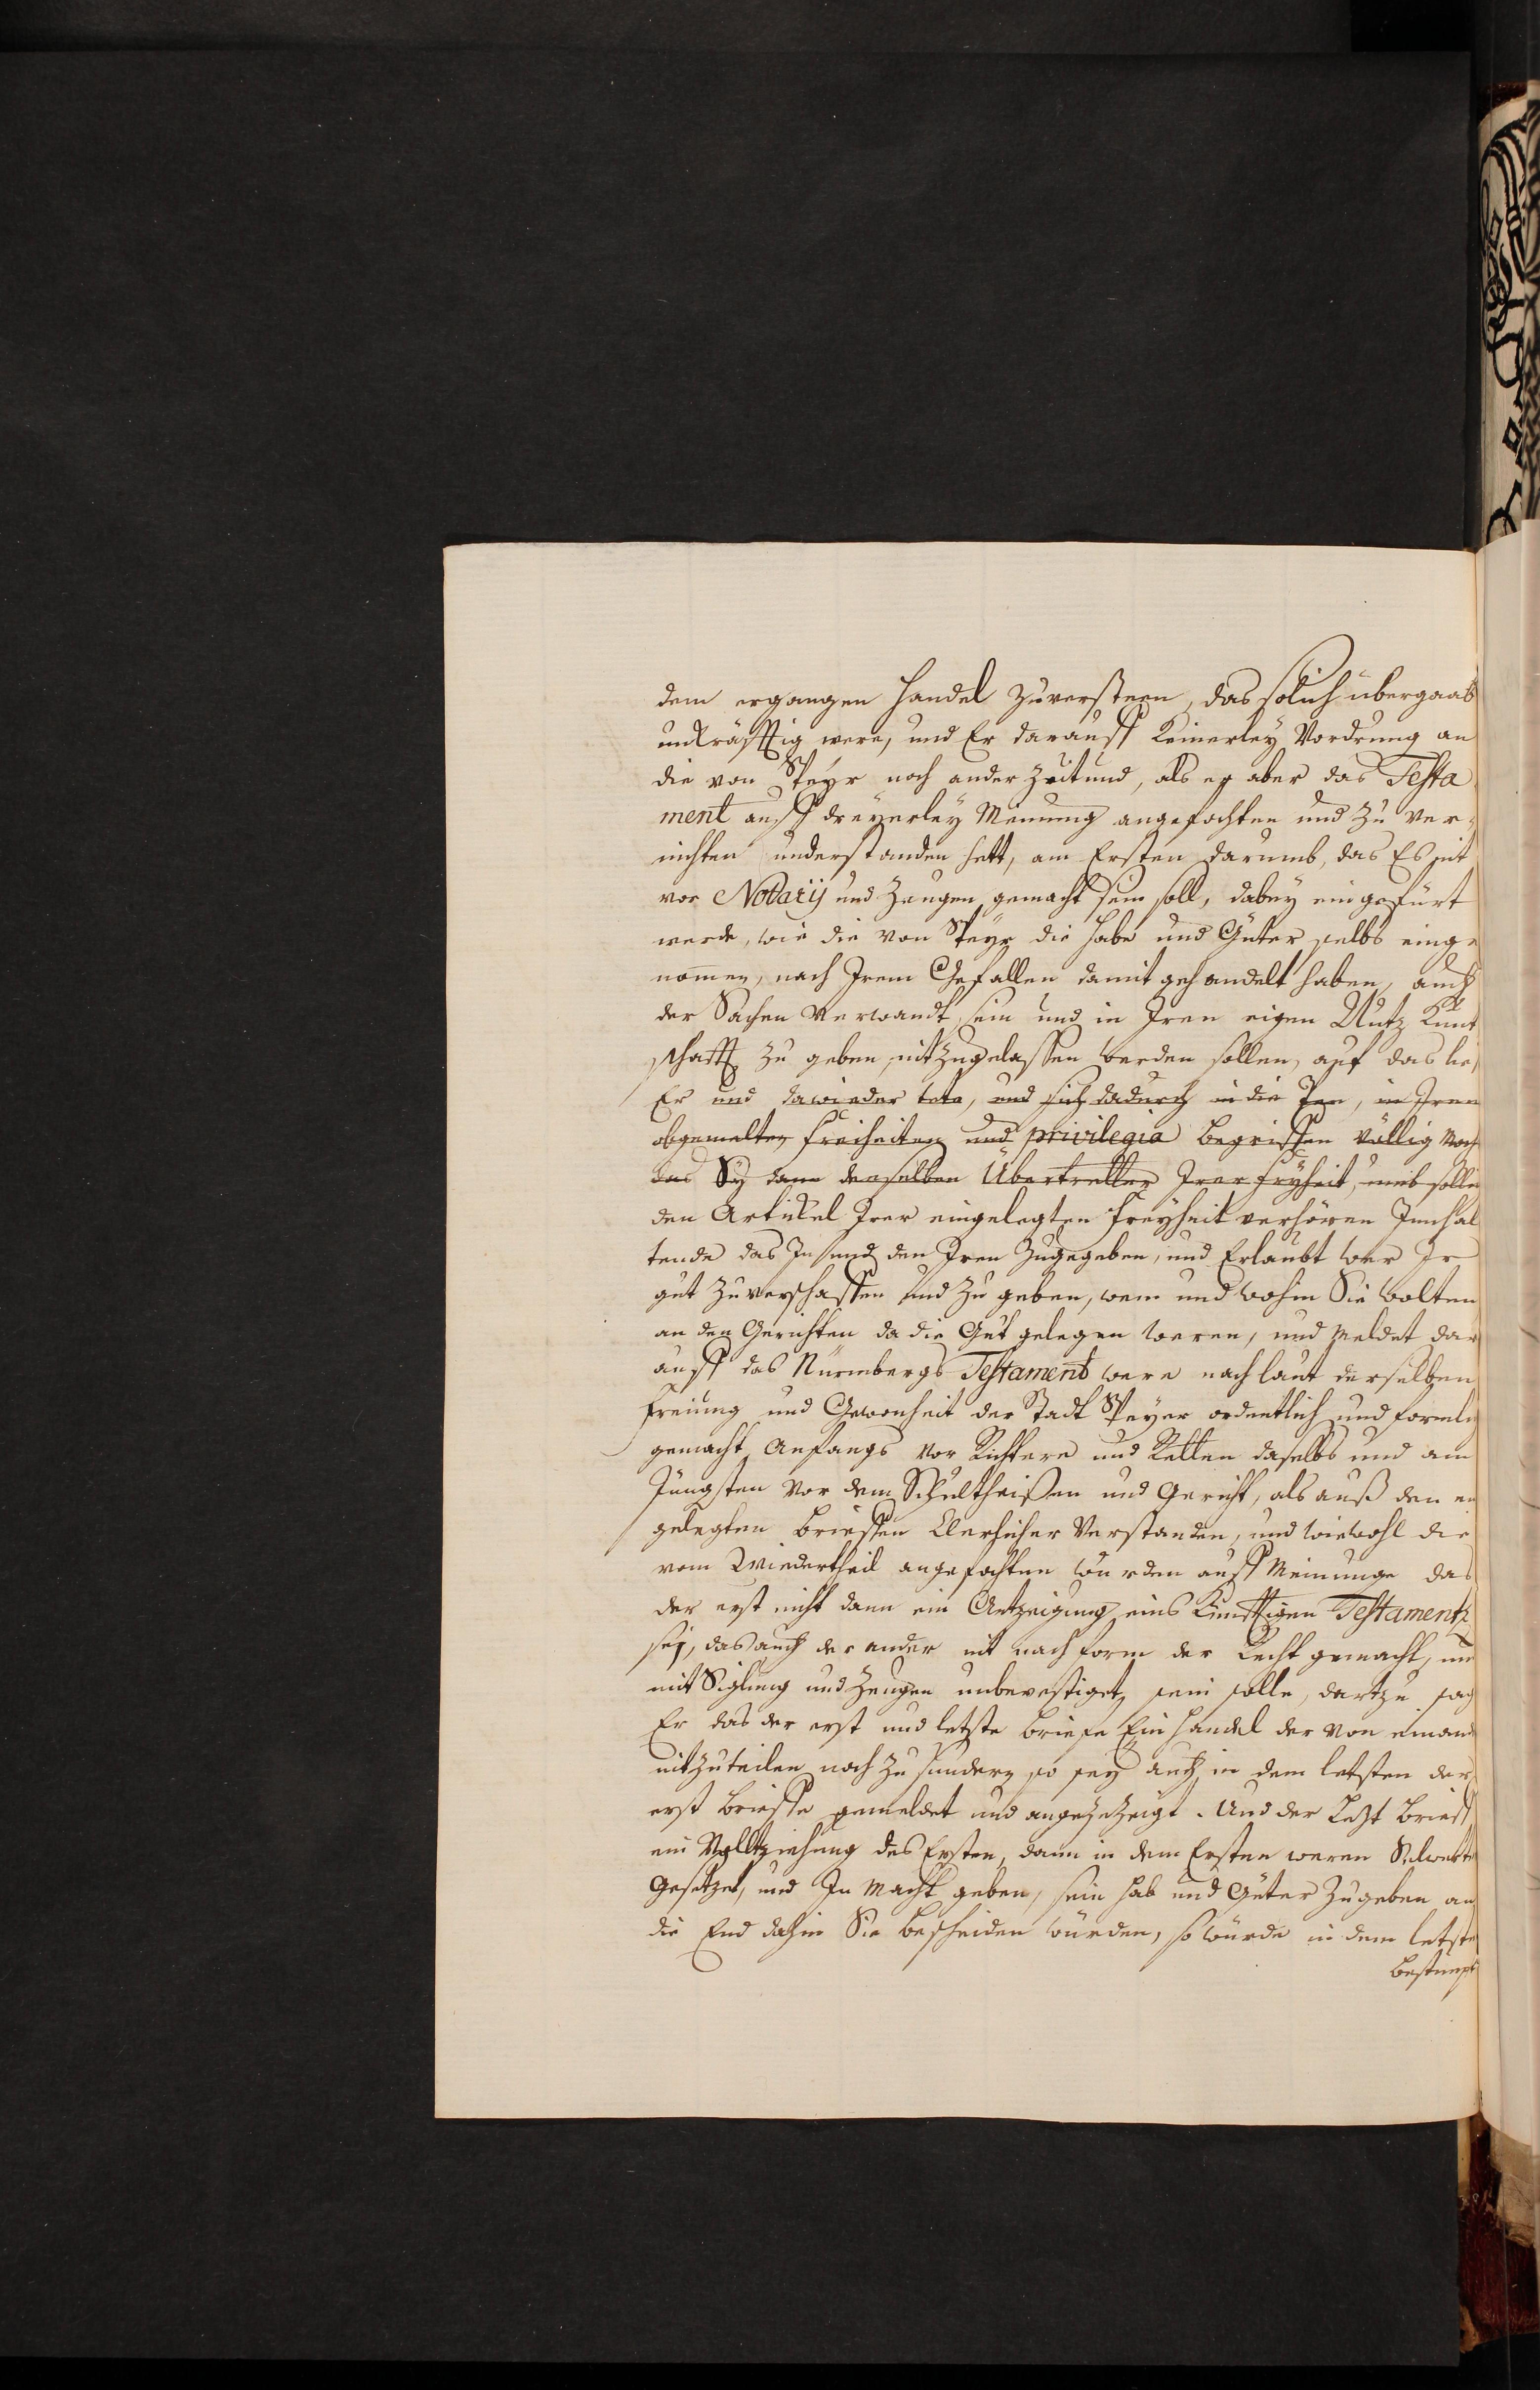 dem ergangen Handel zuversteen, das solich übergaab
unkräfftig were, und Er darauff keinerley Vordrung an
die von Speyr noch ander Zeit und, als er aber das Testa
ment auff dreyerley Meinung angefochten und zu ver-
nichten understanden hett, am Ersten darumb, das Es nit
vor Notarij und Zeugen gemacht sein soll, dabey eingefürt
werde, wie die von Speyr die Habe und Güter selbs einge
nomen, nach Irem Gefallen damit gehandelt haben, auch
der Sachen verwandt sein und in Iren eigen Nutz Kunt
schafft zu geben, nit zugelassen werden sollen, auf das lies
Er und dawieder tete, und sich dadurch in die Pen, in Iren
obgemelten Freiheiten und privilegia begriffen völlig
das Sy dann denselben Übertretter Irer Fryheit, umb solle
den Artikel Irer eingelegten Freyheit verhören Innhal
tende das In und den Iren zugegeben, und Erlaubt wer Ir
gut zu verschaffen und zu geben, wem und wohin Sie wolten
an den Gerichten da die Gut gelegen weren, und meldet dar
auff das Nürmbergs Testament were nach laut derselben
Freiung und Gewonheit der Stadt Speyer ordentlich und formlich
gemacht Anfangs vor Richtere und Retten daselbs und am
Jüngsten vor dem Schultheißen und Gericht, als auß den ein
gelegten brieffen Clerlicher Verstanden, und wiewohl die
vom Wiedertheil angefochten wurden auff Meinunge das
der erst nicht dann ein Antzeigung eins Künfftigen Testaments
sei, das auch der ander nit nach form der Recht gemacht, und
mit Siglung und Zeugen unbevestiget sein solle, dartzu sag
Er das der erst und letste briefe Ein Handel der von einand
nit zuteilen noch zu sundern so sey auch in dem letsten der
erst brieffe gemeldet und angezezeigt. Und der Letzt brieff
ein Volltziehung des Ersten, dann in dem Ersten weren
Gesetzet, und In Macht geben, sein hab und Güter zugeben an
die End dahin Sie bescheiden würden, so würde in dem letste
bestimpt